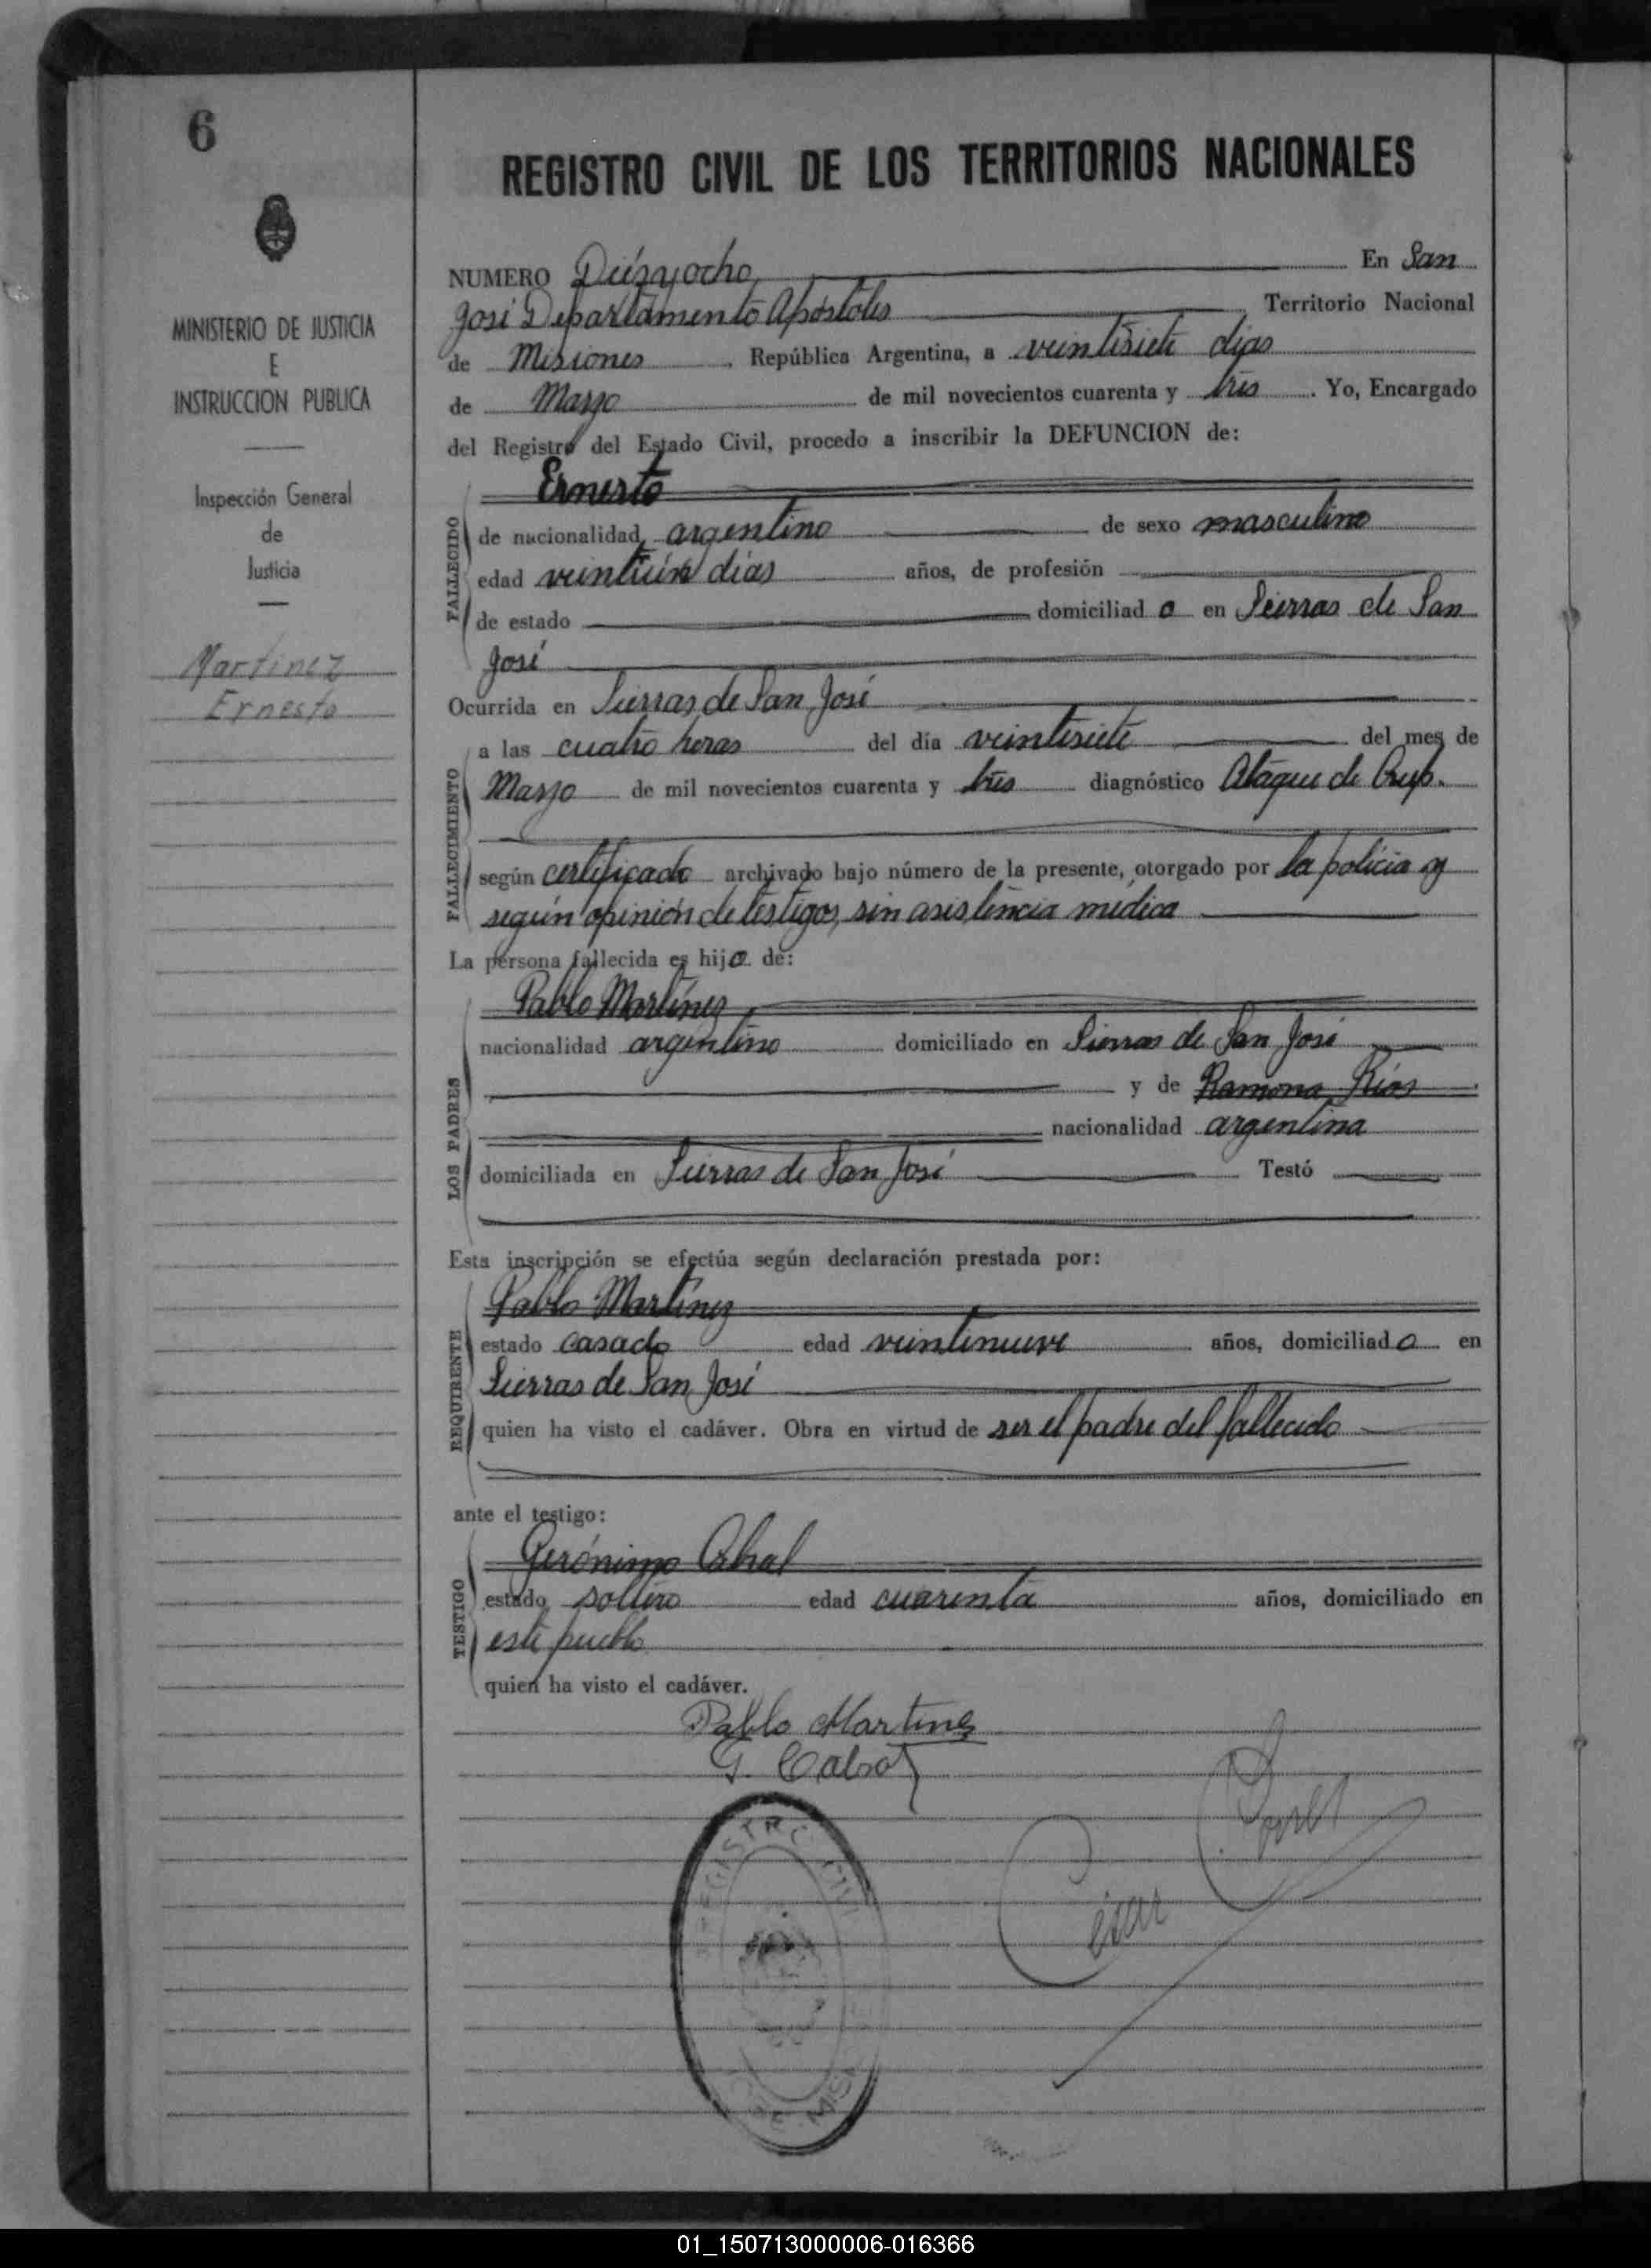 6
MINISTERIO DE JUSTICIA
E
INSTRUCCION PUBLICA
Inspección General
de
Justicia
Martinez
Ernesto
REGISTRO CIVIL DE LOS TERRITORIOS NACIONALES
NUMERO Diézyocho En San
José Departamento Apóstoles Territorio Nacional
de Misiones, República Argentina, a veintisiete dias
de Marzo de mil novecientos cuarenta y tres. Yo, Encargado
del Registro del Estado Civil, procedo a inscribir la DEFUNCION de:
Ernesto
FALLECIDO
de nacionalidad argentino de sexo masculino
edad veintiún dias años, de profesión
de estado domiciliad o en Sierras de San
José
Ocurrida en Sierras de San José
FALLECIMIENTO
a las cuatro horas del día veintisiete del mes de
Marzo de mil novecientos cuarenta y tres diagnóstico Ataque de Crup.
según certificado archivado bajo número de la presente, otorgado por la policia y
según opinión de testigos, sin asistencia médica
La persona fallecida es hijo de:
LOS PADRES
Pablo Martínez
nacionalidad argentino domiciliado en Sierras de San José
y de Ramona Ríos
nacionalidad argentina
domiciliada en Sierras de San José Testó
Esta inscripción se efectúa según declaración prestada por:
REQUIRENTE
Pablo Martínez
estado casado edad veintinueve años, domiciliado en
Sierras de San José
quien ha visto el cadáver. Obra en virtud de ser el padre del fallecido
ante el testigo:
TESTIGO
Gerónimo Cabral
estado soltero edad cuarenta años, domiciliado en
este pueblo
quien ha visto el cadáver.
Pablo Martinez
G. Cabral
REGISTRO CIVIL
César
01_150713000006-016366